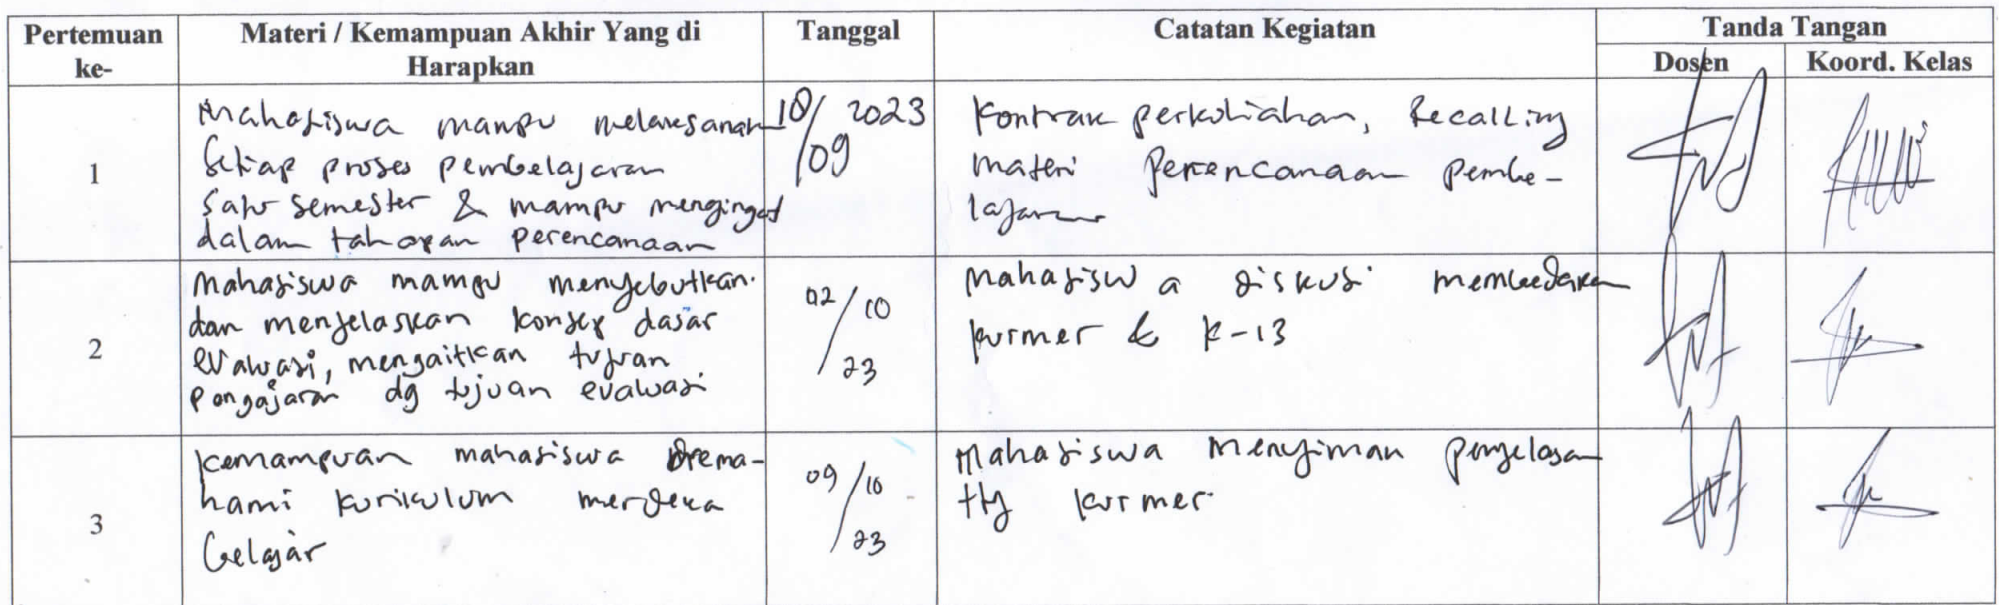 Pertemuan ke-
Materi / Kemampuan Akhir Yang di Harapkan
Tanggal
Catatan Kegiatan
Tanda Tangan
Dosen
Koord. Kelas
1
Mahasiswa mampu melaksanakan
setiap proses pembelajaran
satu semester & mampu mengingat
dalam tahapan perencanaan
18/09 2023
Kontrak perkuliahan, Recalling
materi Perencanaan Pembe-
lajaran
2
Mahasiswa mampu menyebutkan
dan menjelaskan konsep dasar
evaluasi, mengaitkan tujuan
pengajaran dg tujuan evaluasi
02/10
23
Mahasiswa diskusi membedakan
kurmer & K-13
3
Kemampuan mahasiswa mema-
hami kurikulum merdeka
belajar
09/10
23
Mahasiswa menyimak penjelasan
ttg kurmer